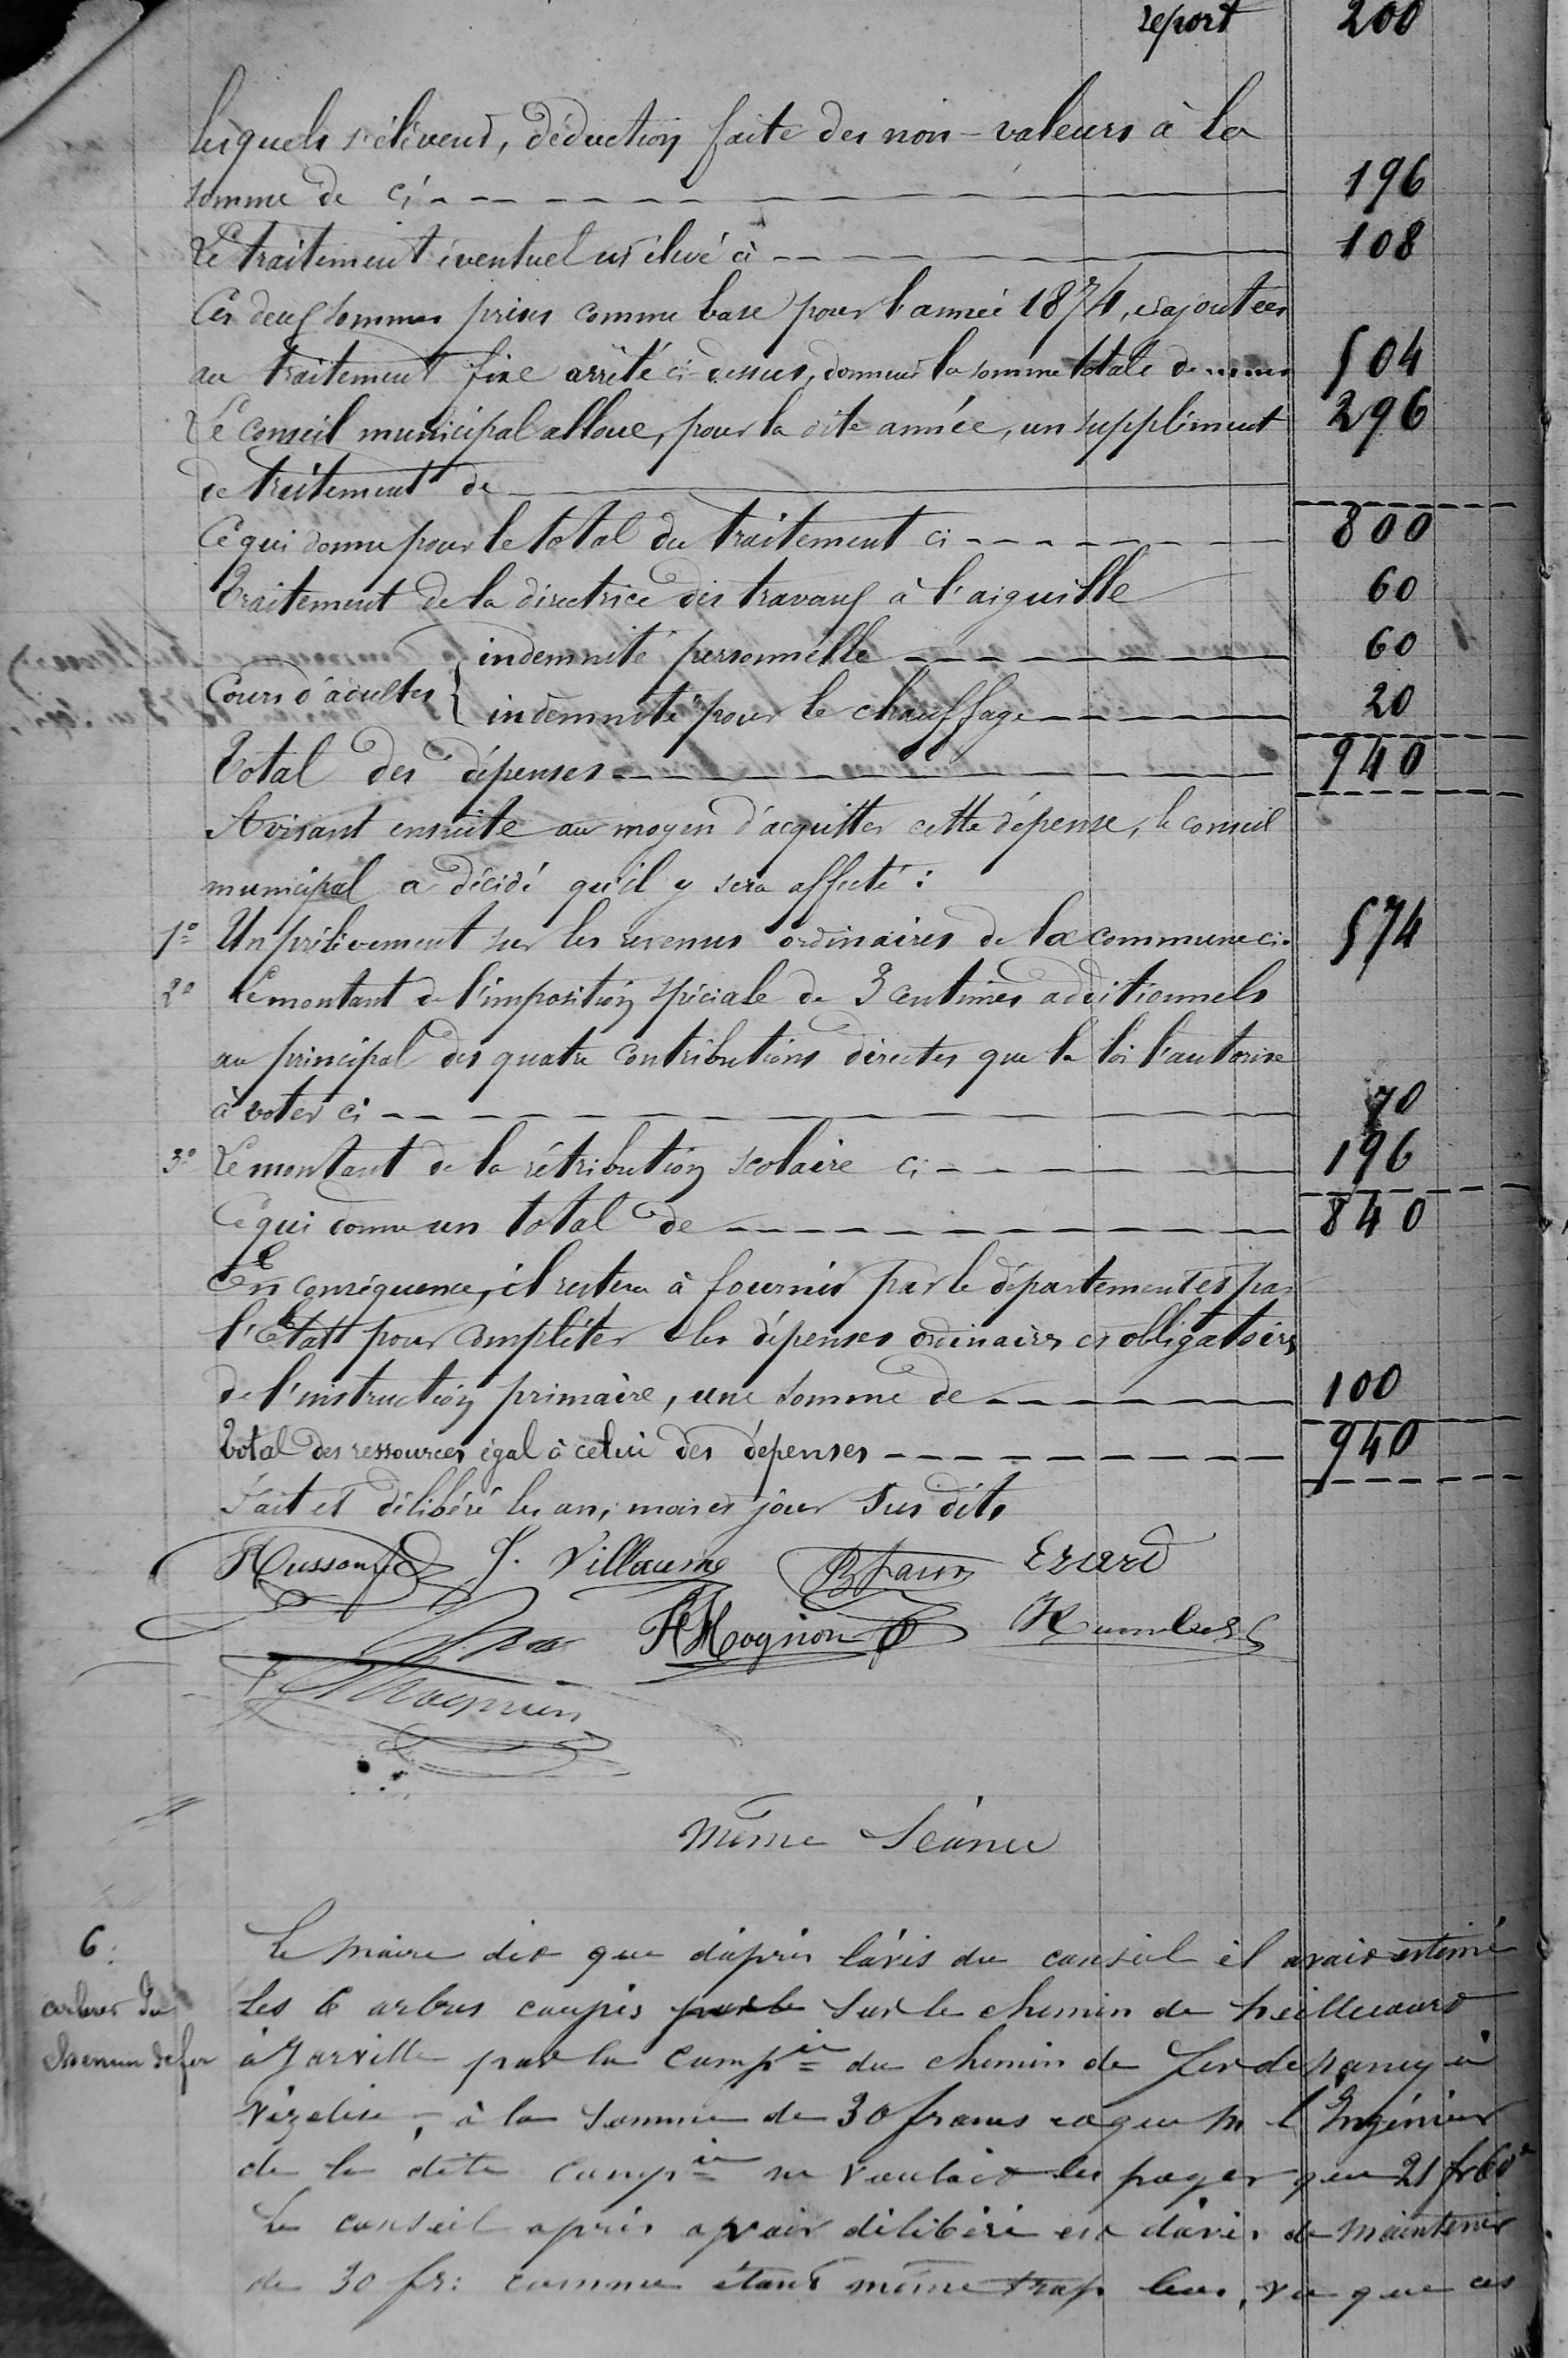 report 200
lesquels s'élèvent, déduction faite des non-valeurs à la
somme de ci 196
Le traitement éventuel est élevé à 108
Ces deux sommes prises comme base pour l'année 1874, et ajoutées
au traitement fixe arrêté ci-dessus, donnent la somme totale de 504
Le conseil municipal alloue, pour la dite année, un supplément 296
de traitement de
Ce qui donne pour le total du traitement ci 800
Traitement de la directrice des travaux à l'aiguille 60
Cours d'adultes { indemnité personnelle 60
indemnité pour le chauffage 20
Total des dépenses 940
Avisant ensuite au moyen d'acquitter cette dépense, le conseil
municipal a décidé qu'il y sera affecté :
1° Un prélèvement sur les revenus ordinaires de la commune ci. 574
2° Le montant de l'imposition spéciale de 3 centimes additionnels
au principal des quatre contributions directes que la loi l'autorise
à voter ci 70
3° Le montant de la rétribution scolaire ci 196
Ce qui donne un total de 840
En conséquence, il restera à fournir par le département et par
l'Etat pour compléter les dépenses ordinaires et obligatoires
de l'instruction primaire, une somme de 100
Total des ressources égal à celui des dépenses 940
Fait et délibéré les an, mois et jour sus dits
Husson J. Villaume Erard
H Mognon Humbert
même Séance
6: Le maire dit que d'après l'avis du conseil il avait estimé
arbres du les 6 arbres coupés sur le chemin de heillecourt
chemin de fer à Jarville par la Comp.ie du chemin de fer de nancy à
Vézelise, à la somme de 30 francs et que M l'Ingénieur
de la dite Comp.ie ne voulait les payer que 21 fr 60
Le conseil après avoir délibéré est d'avis de maintenir
de 30 fr: comme étant même trop bas, vu que ces